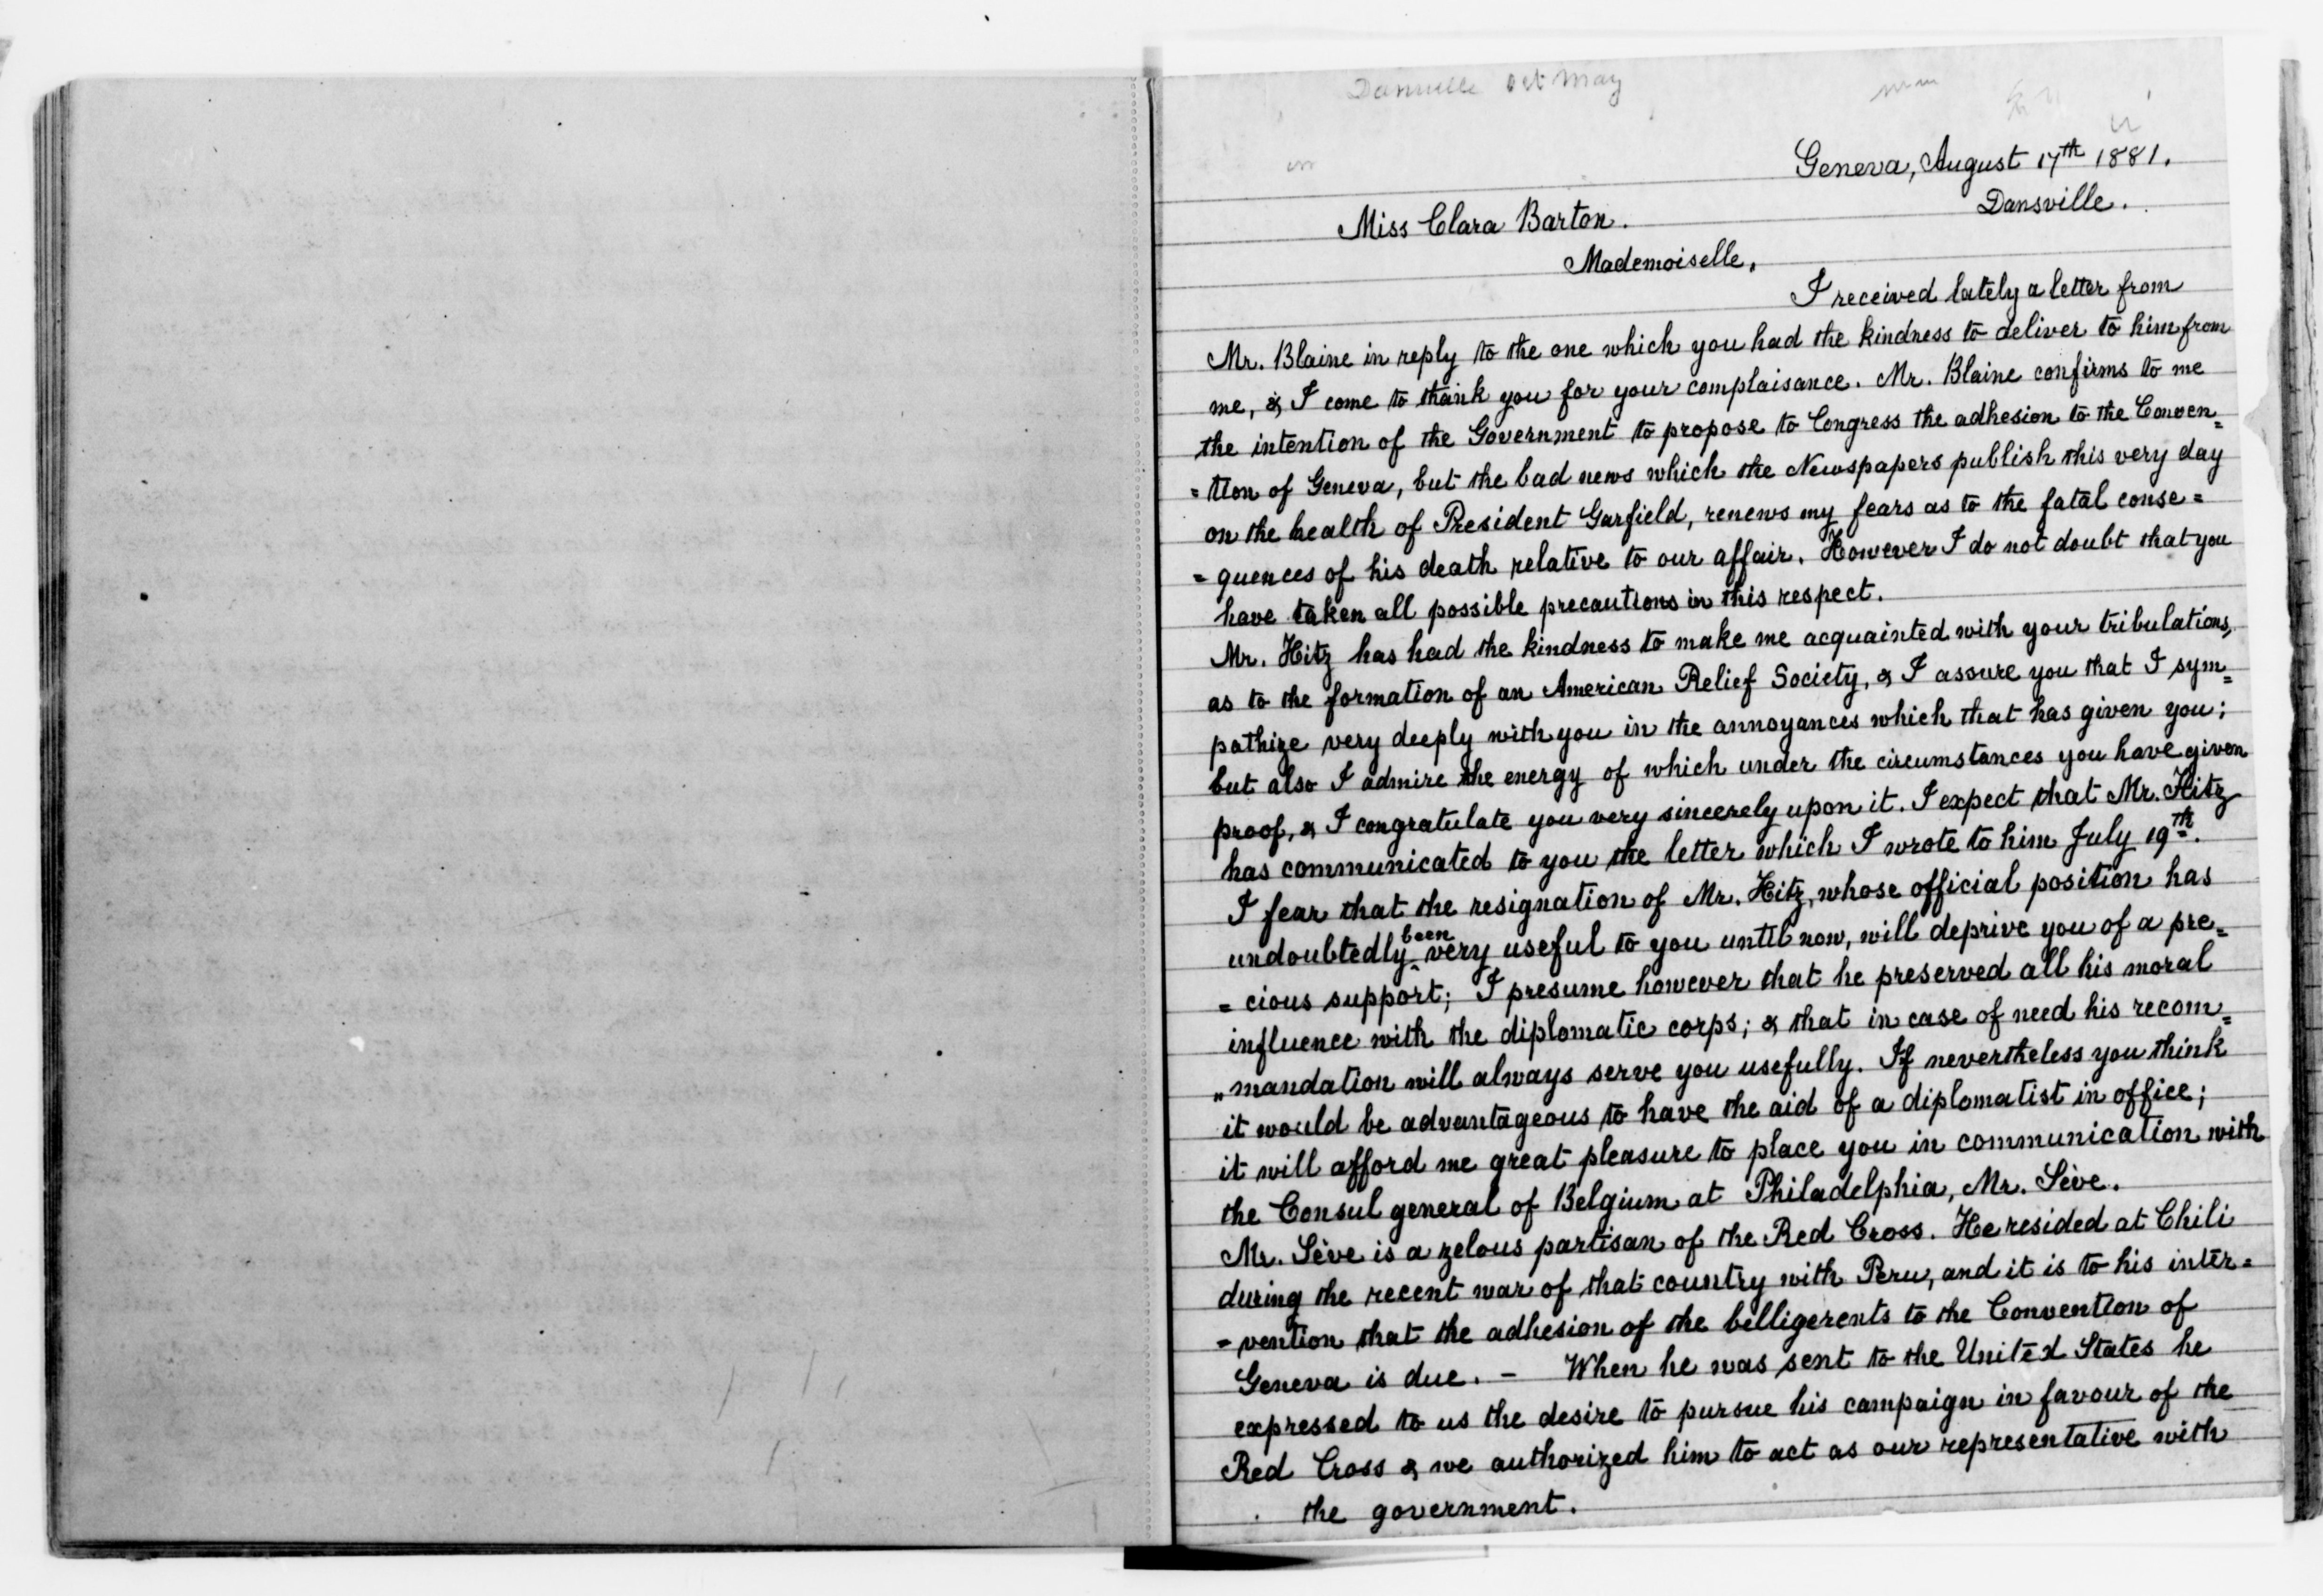 Dansville
Geneva, August 17th 1881.
Dansville.
Miss Clara Barton.
Mademoiselle,
I received lately a letter from
Mr. Blaine in reply to the one which you had the kindness to deliver to him from
me, & I come to thank you for your complaisance. Mr. Blaine confirms to me
the intention of the Government to propose to Congress the adhesion to the Conven=
=tion of Geneva, but the bad news which the Newspapers publish this very day
on the health of President Garfield, renews my fears as to the fatal conse=
=quences of his death relative to our affair. However I do not doubt that you
have taken all possible precautions in this respect.
Mr. Hitz has had the kindness to make me acquainted with your tribulations,
as to the formation of an American Relief Society, & I assure you that I sym=
pathize very deeply with you in the annoyances which that has given you;
but also I admire the energy of which under the circumstances you have given
proof, & I congratulate you very sincerely upon it. I expect that Mr. Hitz
has communicated to you the letter which I wrote to him July 19th.
I fear that the resignation of Mr. Hitz, whose official position has
undoubtedly been very useful to you until now, will deprive you of a pre=
=cious support; I presume however that he preserved all his moral
influence with the diplomatic corps; & that in case of need his recom=
„mandation will always serve you usefully. If nevertheless you think
it would be advantageous to have the aid of a diplomatist in office;
it will afford me great pleasure to place you in communication with
the Consul general of Belgium at Philadelphia, Mr. Sève.
Mr. Sève is a zelous partisan of the Red Cross. He resided at Chili
during the recent war of that country with Peru, and it is to his inter=
=vention that the adhesion of the belligerents to the Convention of
Geneva is due. – When he was sent to the United States he
expressed to us the desire to pursue his campaign in favour of the
Red Cross & we authorized him to act as our representative with
the government.